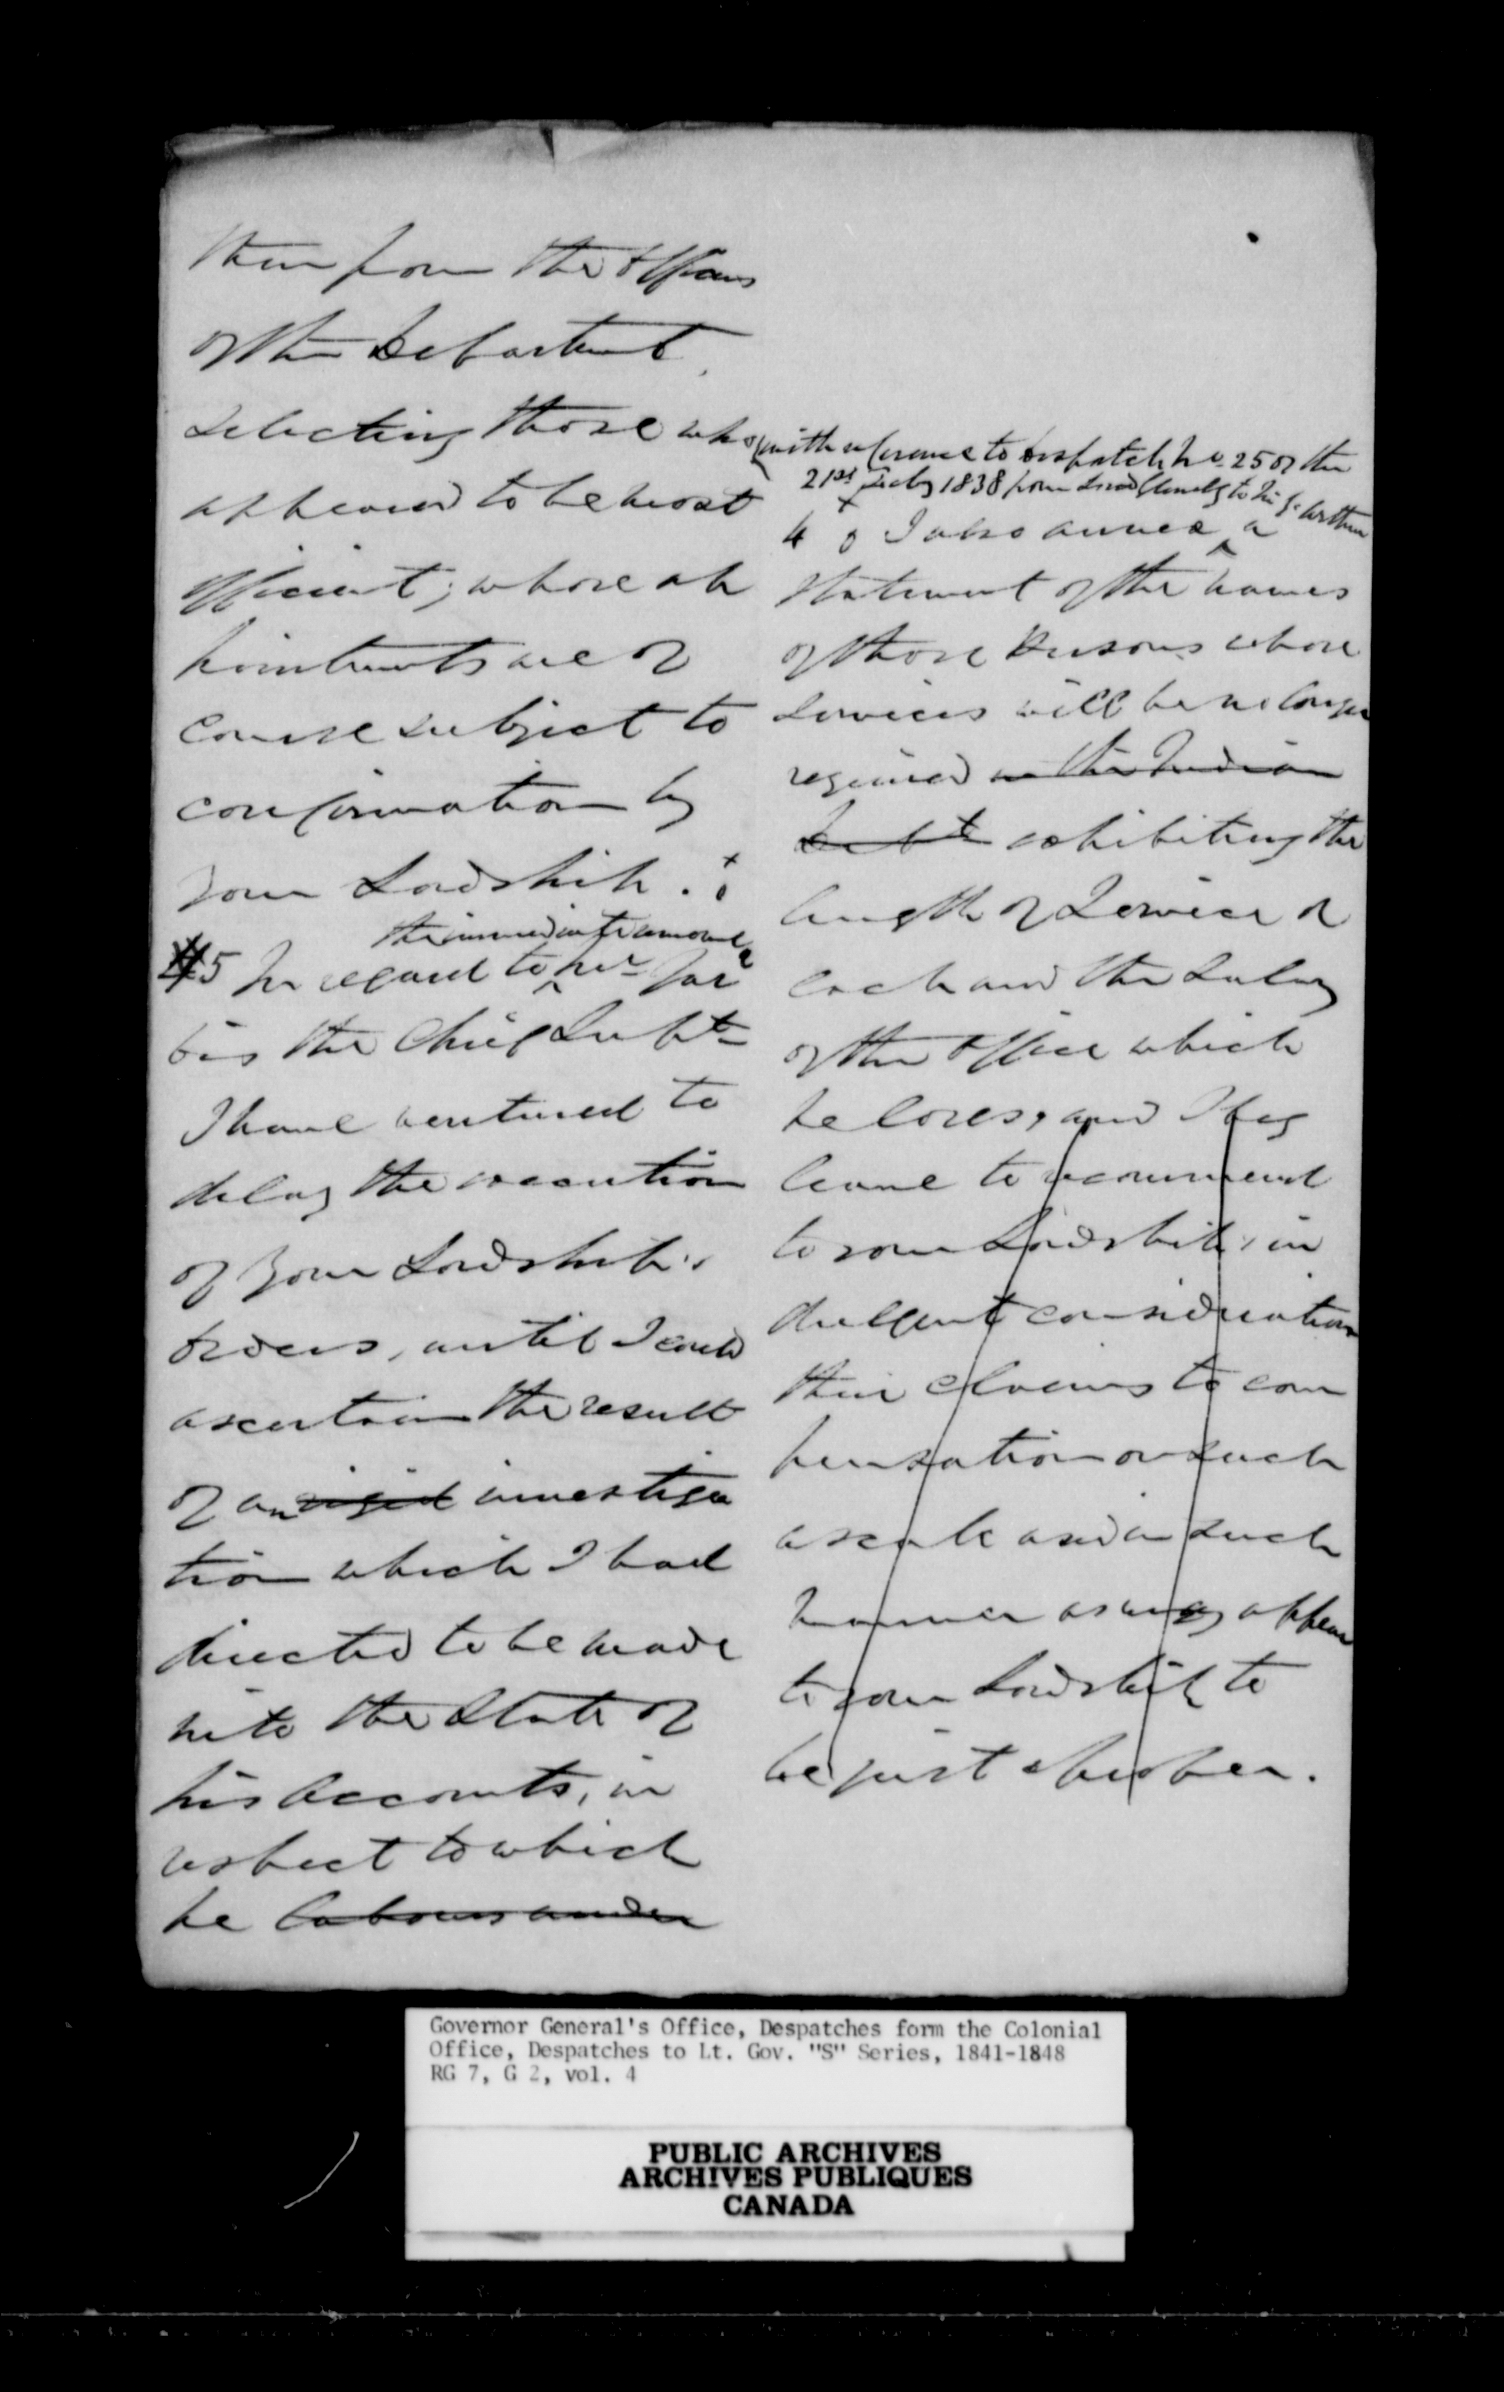 them from the Officers
of the Department,
selecting those who
appeared to be most
efficient; whose ap
pointments are of
course subject to
confirmation by
your Lordship. x
the immediate removal
4 5 In regard to Mr Jar
vis the Chief Supt
I have ventured to
delay the execution
of your Lordship's
orders, until I could
ascertain the result
of an rigid investiga
tion which I had
directed to be made
into the State of
his Accounts, in
respect to which
he labours under
with reference to Despatch No 25 of the
21st July 1838 from Lord Glenelg to Sir G. Arthur
x
4 I also annex a
statement of the names
of those Persons whose
services will be no longer
required in the Indian
Dept exhibiting the
length of Service of
each and the Salary
of the Office which
he loses, and I beg
leave to recommend
to your Lordship's in
dulgent consideration
their claims to com
pensation on such
a scale and in such
manner as may appear
to your Lordship to
be just & proper.
Governor General's Office, Despatches form the Colonial
Office, Despatches to Lt. Gov. "S" Series, 1841-1848
RG 7, G 2, vol. 4
PUBLIC ARCHIVES
ARCHIVES PUBLIQUES
CANADA